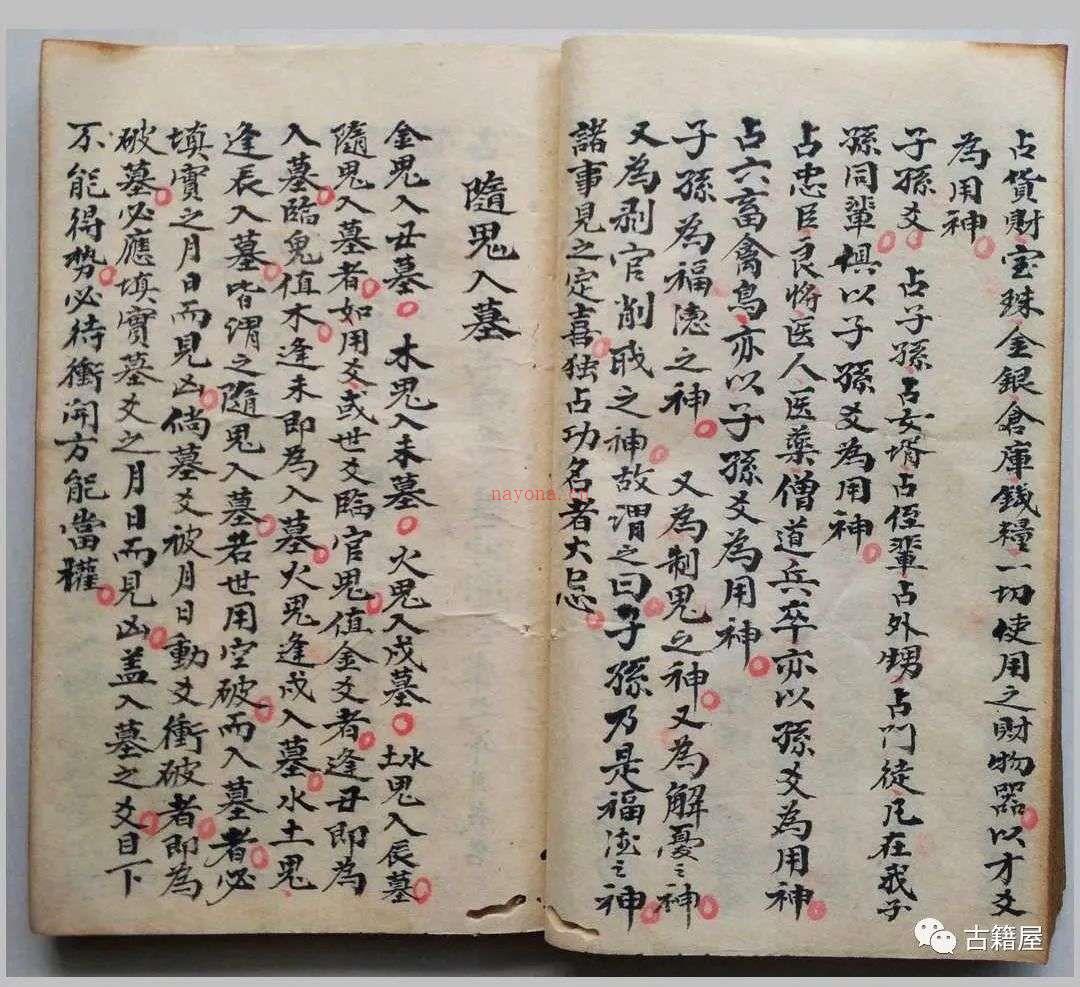 占貨財宝珠金銀倉庫錢糧一切使用之財物器以才爻
為用神
子孫爻 占子孫占女壻占侄輩占外甥占門徒凡在我子
孫同輩俱以子孫爻為用神
占忠臣良将医人医薬僧道兵卒亦以孫爻為用神
占六畜禽鳥亦以子孫爻為用神
子孫為福德之神 又為制鬼之神又為解憂之神
又為剥官削职之神故謂之曰子孫乃是福德之神
諸事見之定喜独占功名者大忌
隨鬼入墓
金鬼入丑墓 木鬼入未墓 火鬼入戍墓 水土鬼入辰墓
隨鬼入墓者如用爻或世爻臨官鬼值金爻者逢丑即為
入墓臨鬼值木逢未即為入墓火鬼逢戍入墓水土鬼
逢辰入墓皆謂之隨鬼入墓若世用空破而入墓者必
填實之月日而見凶倘墓爻被月日動爻衝破者即為
破墓必應填實墓爻之月日而見凶盖入墓之爻目下
不能得势必待衝開方能當權
nayona.cn
古籍屋